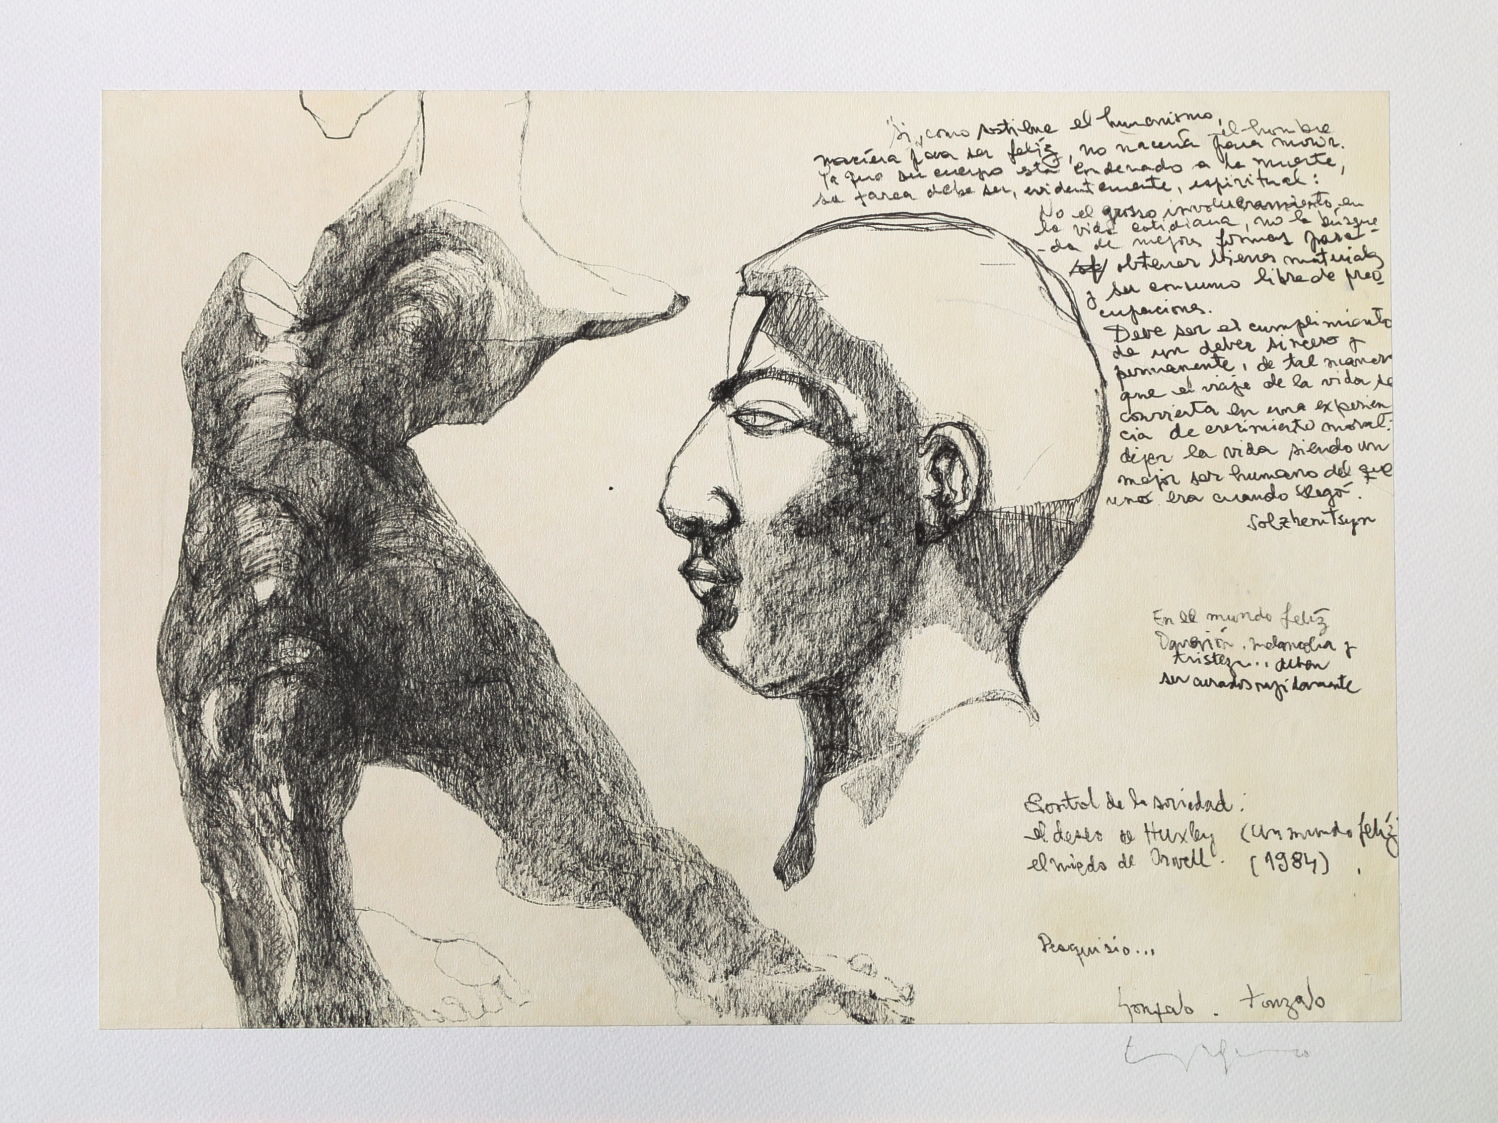 "Si, como sostiene el humanismo,
el hombre
naciera para ser feliz, no nacería para morir.
Ya que su cuerpo está condenado a la muerte,
su tarea debe ser, evidentemente, espiritual:
No el grosso involucramiento en
la vida cotidiana, no la búsque-
-da de mejores formas para
obtener bienes materiales
y su consumo libre de preo-
cupaciones.
Debe ser el cumplimiento
de un deber sincero y
permanente, de tal manera
que el viaje de la vida se
convierta en una experien
cia de crecimiento moral:
dejar la vida siendo un
mejor ser humano del que
uno era cuando llegó".
Solzhenitsyn
En el mundo feliz
melancolia y
tristeza... deben
ser curados rapidamente
Control de la sociedad:
el deseo de Huxley (Un mundo feliz)
el miedo de Orwell. (1984)
Pesquisio...
Gonzalo . Gonzalo